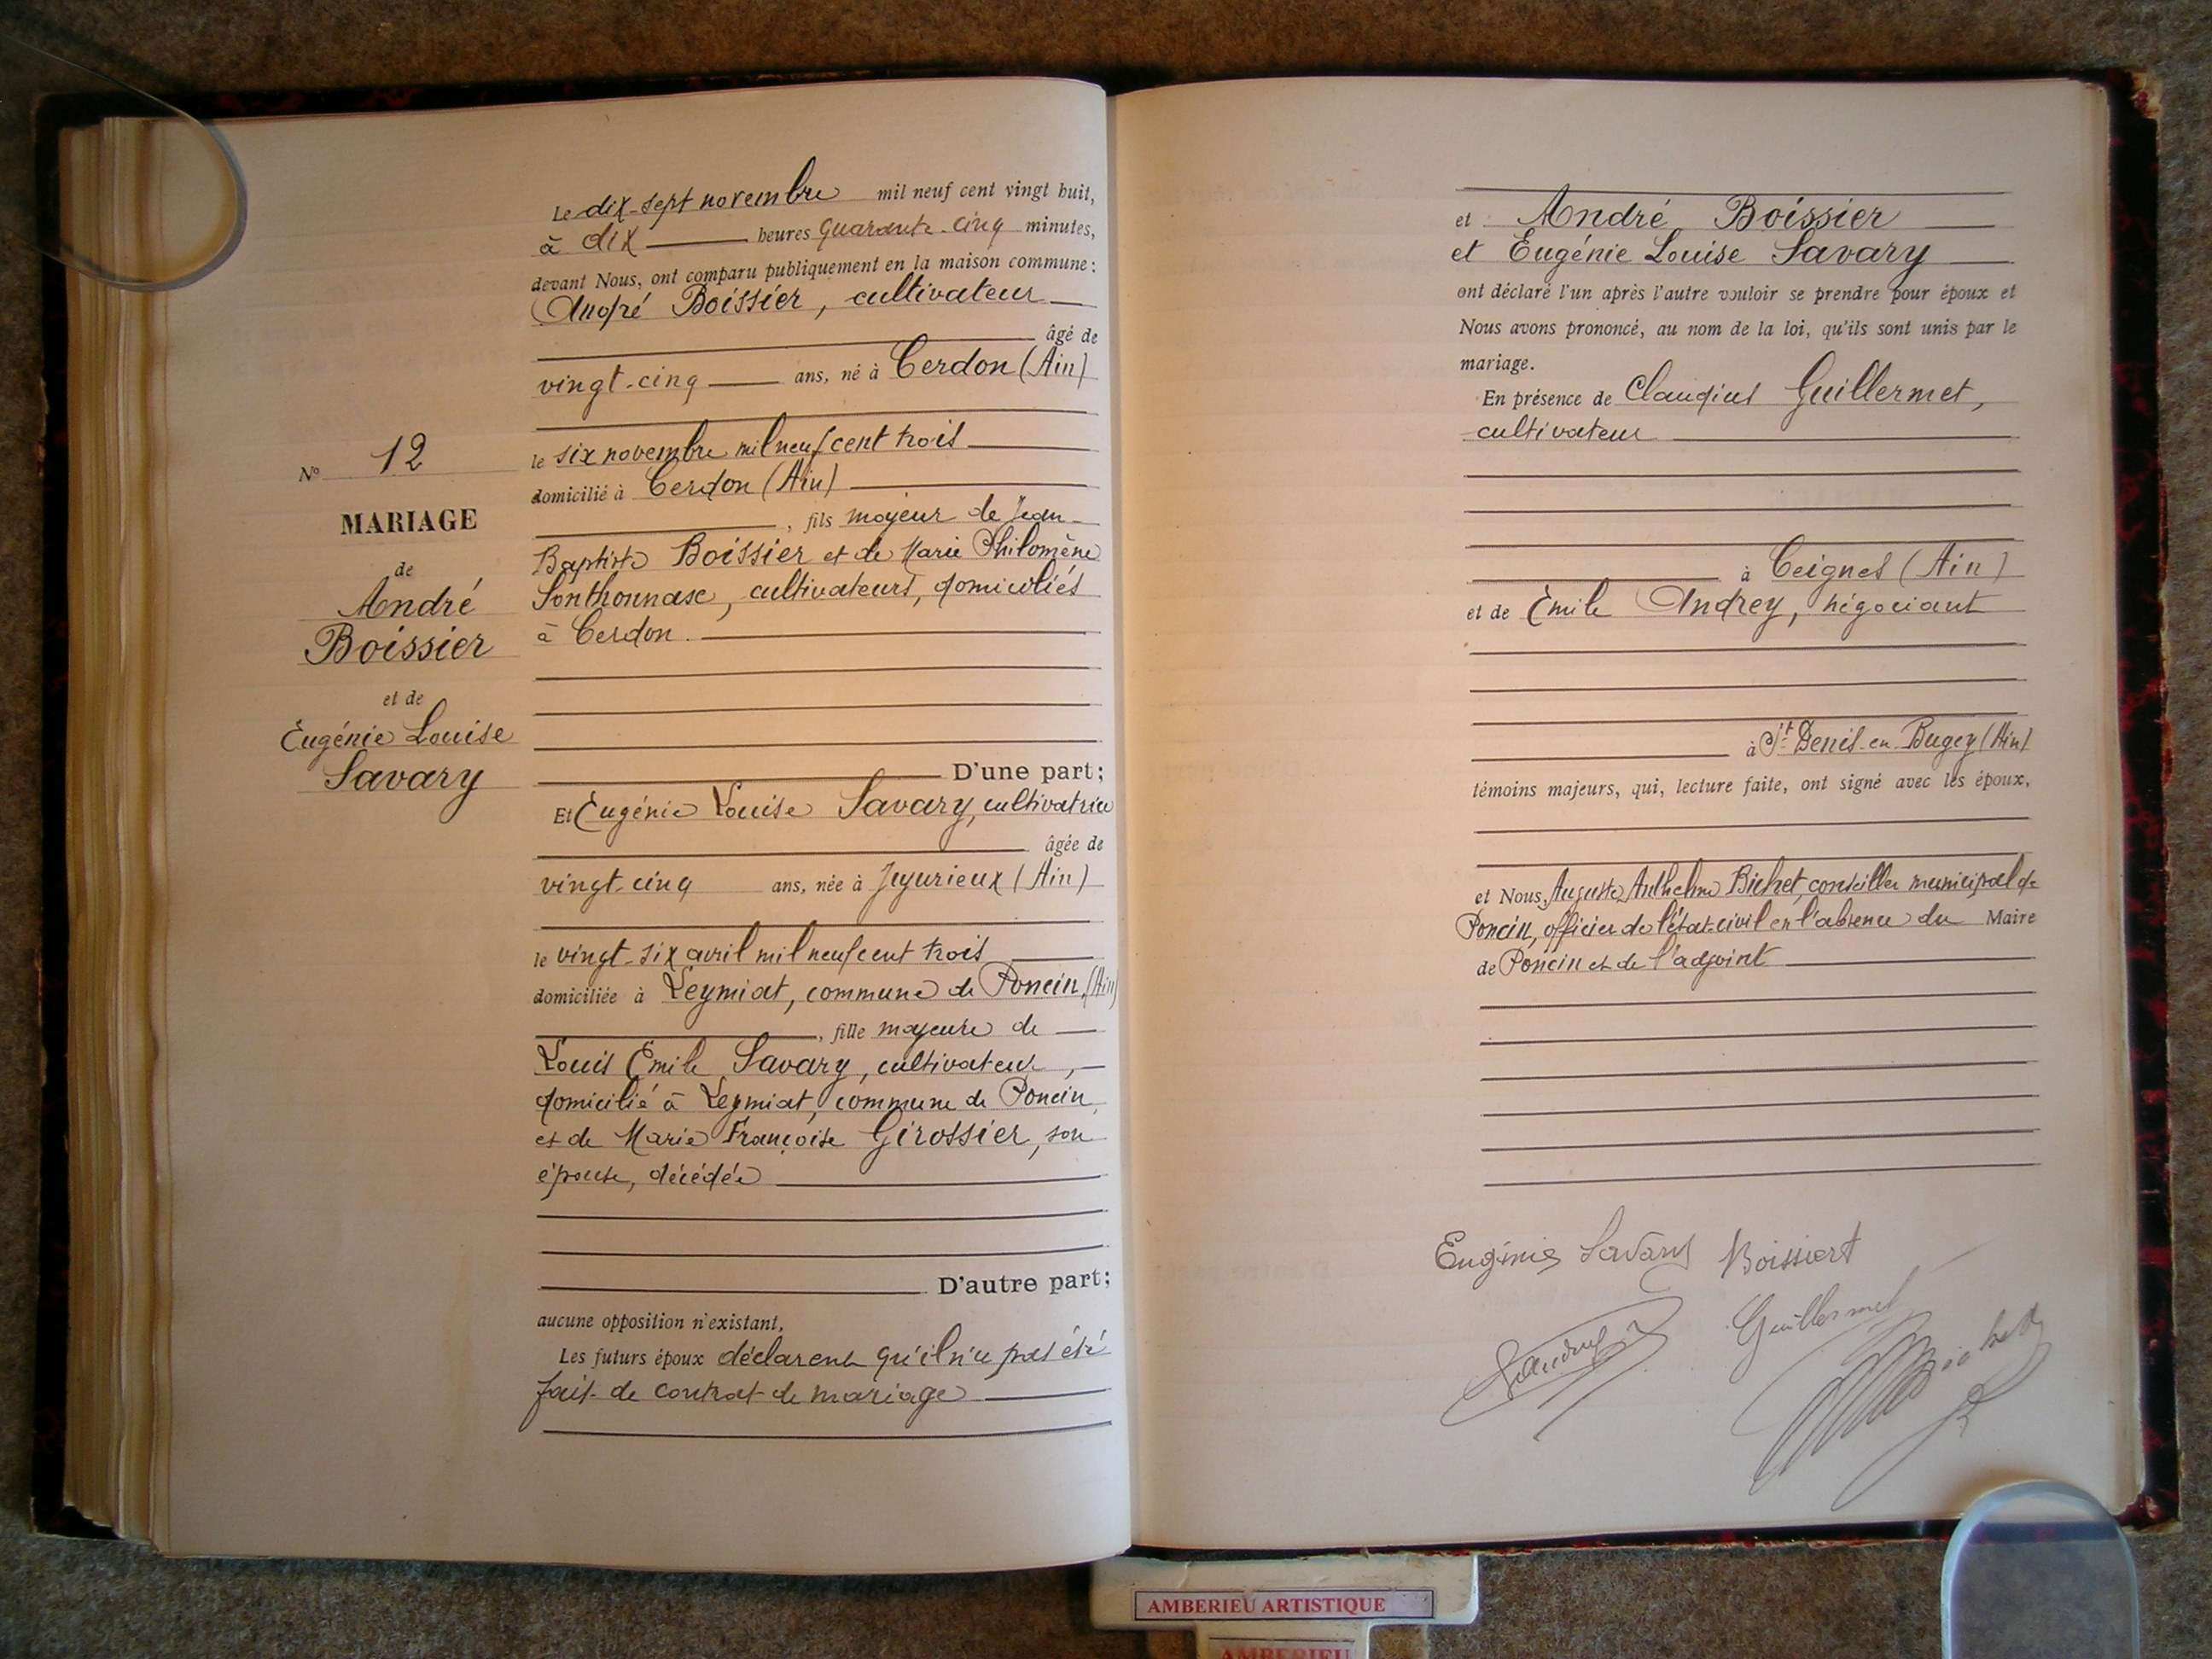 Le dix-sept novembre mil neuf cent vingt huit,
à dix heures quarante-cinq minutes,
devant Nous, ont comparu publiquement en la maison commune :
André Boissier, cultivateur
âgé de
vingt-cinq ans, né à Cerdon (Ain)
le six novembre mil neuf cent trois
domicilié à Cerdon (Ain)
, fils majeur de Jean-
Baptiste Boissier et de Marie Philomène
Sonthonnase, cultivateurs, domiciliés
à Cerdon.
D'une part;
Et Eugénie Louise Savary, cultivatrice
âgée de
vingt-cinq ans, née à Jujurieux (Ain)
le vingt-six avril mil neuf cent trois
domiciliée à Leymiat, commune de Poncin, (Ain)
, fille majeure de
Louis Emile Savary, cultivateur,
domicilié à Leymiat, commune de Poncin,
et de Marie Françoise Girossier, son
épouse, décédée
D'autre part;
aucune opposition n'existant,
Les futurs époux déclarent qu'il n'a pas été
fait de contrat de mariage
N° 12
MARIAGE
de
André
Boissier
et de
Eugénie Louise
Savary
et André Boissier
et Eugénie Louise Savary
ont déclaré l'un après l'autre vouloir se prendre pour époux et
Nous avons prononcé, au nom de la loi, qu'ils sont unis par le
mariage.
En présence de Claudius Guillermet,
cultivateur
à Ceignes (Ain)
et de Emile Andrey, négociant
à St Denis-en-Bugey (Ain)
témoins majeurs, qui, lecture faite, ont signé avec les époux,
et Nous, Auguste Anthelme Bichet, conseiller municipal de
Poncin, officier de l'état-civil en l'absence du Maire
de Poncin et de l'adjoint
Eugénie Savary Boissiert
Guillermet
Bichet
AMBERIEU ARTISTIQUE
AMBERIEU